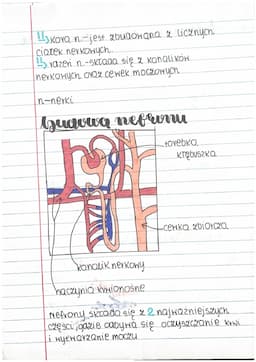 kora n.-jest zbudowana z licznych
ciałek nerkowych.
rdzeń n.-składa się z kanalików
nerkowych oraz cewek moczowych.
n-nerki
Budowa nefronu
torebka
kłębuszka
cewka zbiorcza
kanalik nerkowy
naczynia krwionośne
Nefrony składa się z 2 najważniejszych
części, gdzie odbywa się oczyszczanie krwi
i wytwarzanie moczu